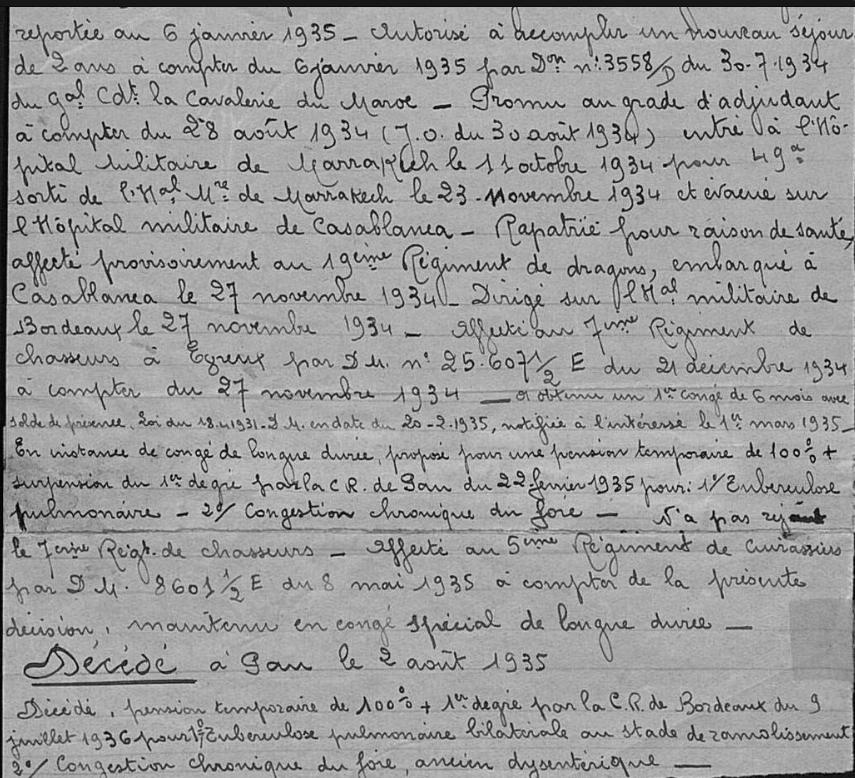 reportée au 6 janvier 1935 - Autorisé à accomplir un nouveau séjour
de 2 ans à compter du 6 janvier 1935 par Don n°: 3558/D du 30-7-1934
du Gal Cdt la Cavalerie du Maroc - Promu au grade d'adjudant
à compter du 28 août 1934 (J.O. du 30 août 1934) entré à l'Hô-
pital Militaire de Marrakech le 11 octobre 1934 pour
sorti de l'Hal Mre de Marrakech le 23 novembre 1934 et évacué sur
l'Hôpital militaire de Casablanca - Rapatrié pour raison de santé,
affecté provisoirement au 19eme Régiment de dragons, embarqué à
Casablanca le 27 novembre 1934 - Dirigé sur l'Hal militaire de
Bordeaux le 27 novembre 1934 - Affecté au 7eme Régiment de
chasseurs à Evreux par D.M. n° 25.607 1/2 E du 21 décembre 1934
à compter du 27 novembre 1934 — a obtenu un 1er congé de 6 mois avec
solde de présence. Loi du 18.4.1931 - D.M. en date du 20-2-1935, notifiée à l'intéressé le 1er mars 1935 -
En instance de congé de longue durée, proposé pour une pension temporaire de 100% +
suspension du 1er degré par la C.R. de Pau du 22 février 1935 pour: 1°/ Tuberculose
pulmonaire - 2°/ Congestion chronique du foie - N'a pas rejoint
le 7eme Régt. de chasseurs - Affecté au 5ème Régiment de Cuirassiers
par D.M. 8601 1/2 E du 8 mai 1935 à compter de la présente
décision, maintenu en congé spécial de longue durée —
Décédé à Pau le 2 août 1935
Décédé, pension temporaire de 100% + 1er degré par la C.R. de Bordeaux du 9
juillet 1936 pour 1°/ Tuberculose pulmonaire bilatérale au stade de ramolissement
2°/ Congestion chronique du foie, ancien dysentérique —